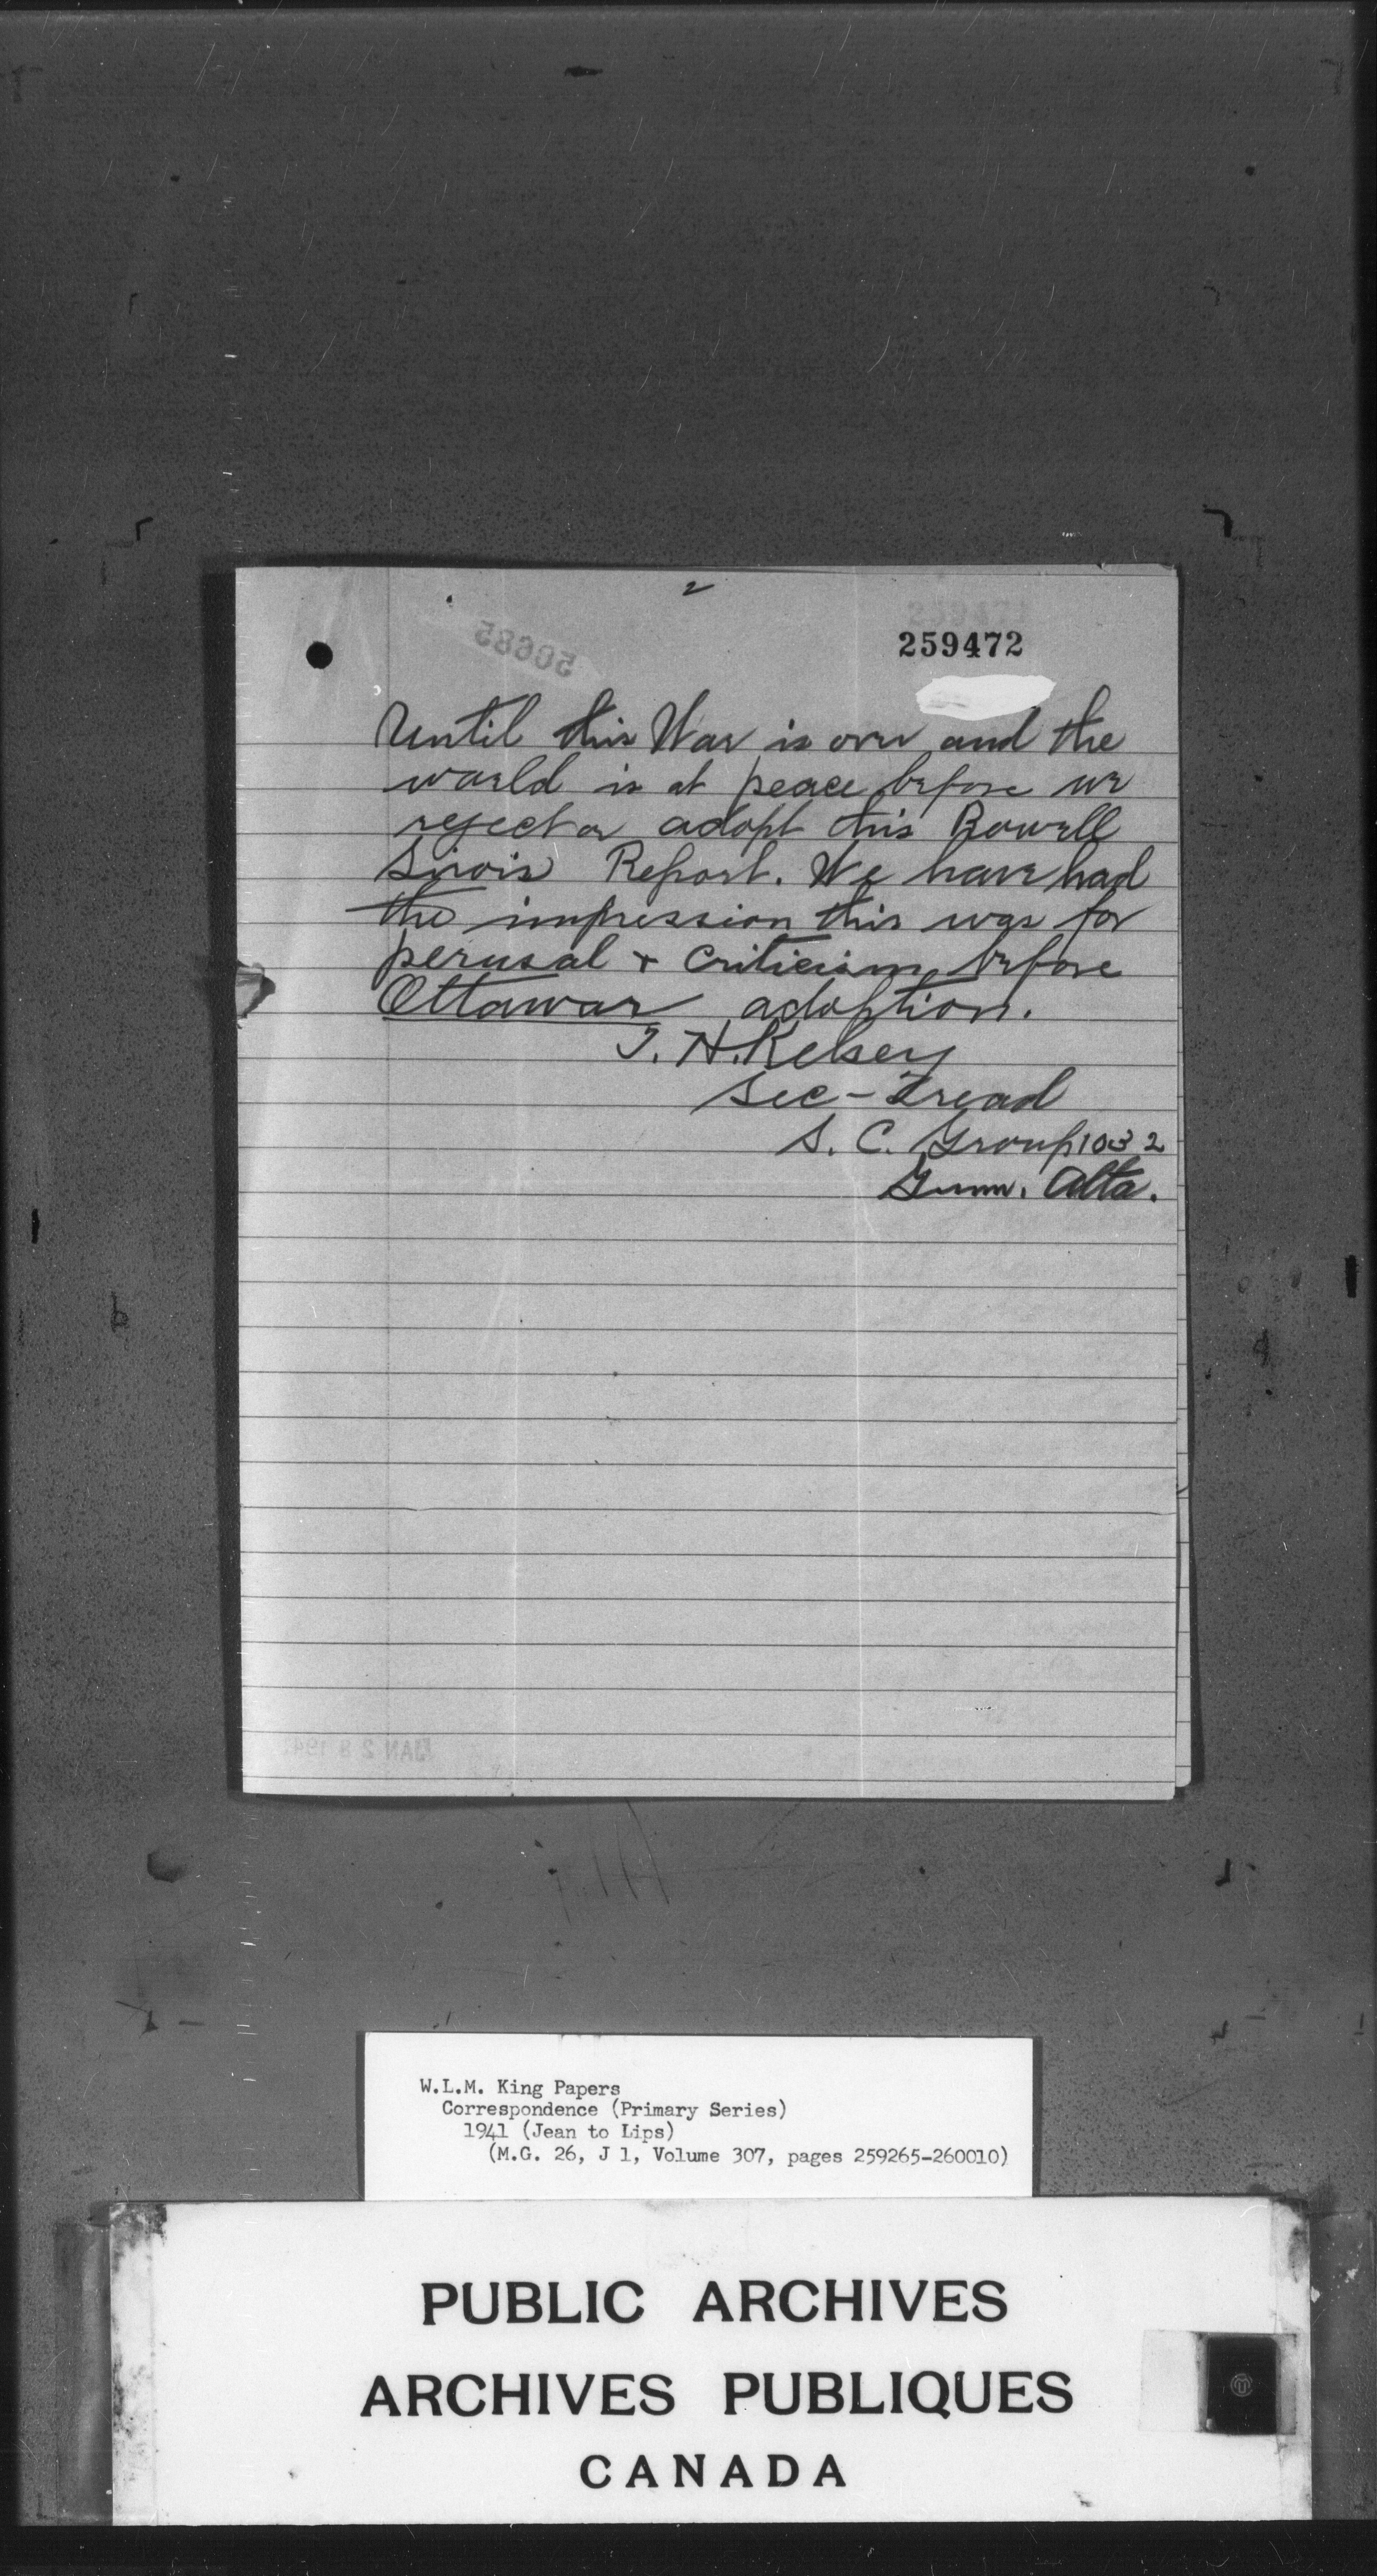 2
50685
259472
Until this War is over and the
world is at peace before we
reject or adopt this Rowell
Sirois Report. We have had
the impression this was for
perusal + criticism before
Ottawas adoption.
T. H. Kelsey
Sec-Tread
S. C. Group 1032
Gunn. Alta.
JAN 28 194
W.L.M. King Papers
Correspondence (Primary Series)
1941 (Jean to Lips)
(M.G. 26, J 1, Volume 307, pages 259265-260010)
PUBLIC ARCHIVES
ARCHIVES PUBLIQUES
CANADA